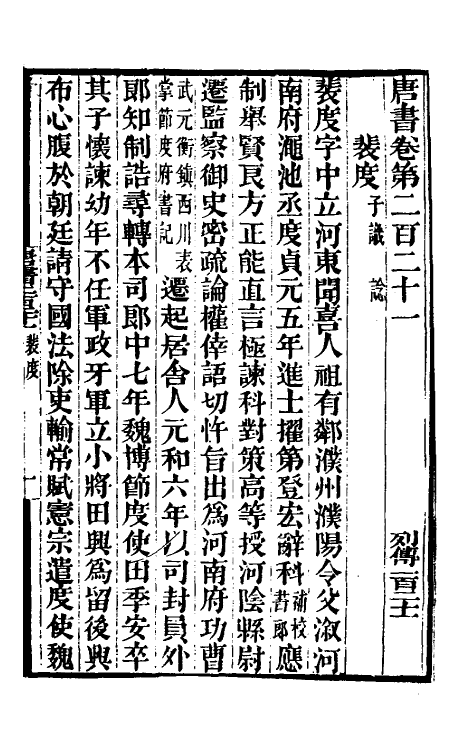 唐書卷第二百二十一　列傳一百二十一
裴度子識　諗
裴度字中立河東聞喜人祖有鄰濮州濮陽令父溆河
南府澠池丞度貞元五年進士擢第登宏辭科補校書郎應
制舉賢良方正能直言極諫科對策高等授河陰縣尉
遷監察御史密疏論權倖語切忤旨出爲河南府功曹
武元衡鎮西川表掌節度府書記遷起居舍人元和六年以司封員外
郎知制誥尋轉本司郎中七年魏博節度使田季安卒
其子懷諫幼年不任軍政牙軍立小將田興爲留後興
布心腹於朝廷請守國法除吏輸常賦憲宗遣度使魏
裴度
一